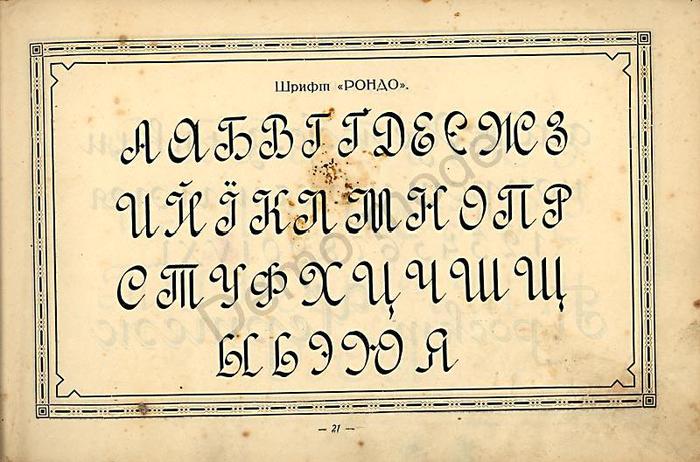 Шрифт «РОНДО».
А А Б В Г Ґ Д Е Є Ж З
И Й Ї К Л М Н О П Р
С Т У Ф Х Ц Ч Ш Щ
Ы Ь Э Ю Я
— 21 —